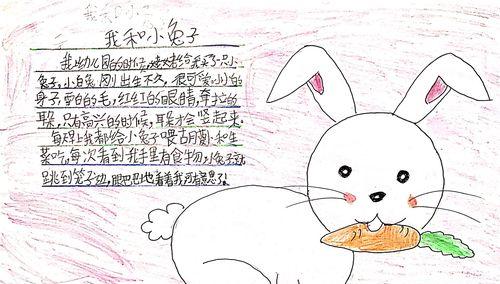 我和小兔子
我幼儿园的时候,给我买了一只小
兔子,小白兔刚出生不久,很可爱。小小的
身子,雪白的毛,红红的眼睛,耷拉的
耳朵,只有高兴的时候,耳朵才会竖起来。
每天早上我都给小兔子喂胡萝卜和生
菜吃,每次看到我手里有食物,小兔子就
跳到笼子边,眼巴巴地看着我可有意思了!